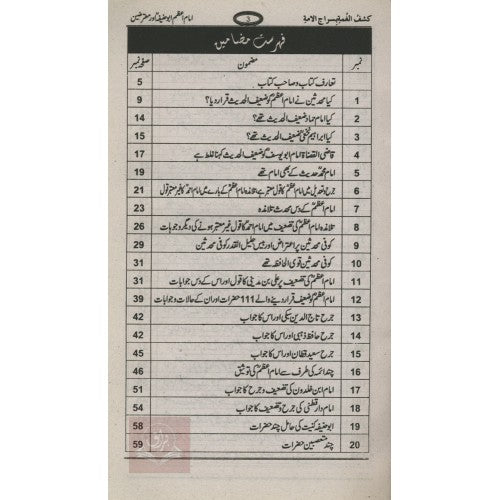 کشف الغمة بسراج الامة 3 امام اعظم ابوحنیفہؒ اور معترضین
فہرست مضامین
نمبر مضمون صفحہ نمبر
تعارف کتاب و صاحب کتاب 5
1 کیا محدثین نے امام اعظمؒ کو ضعیف الحدیث قرار دیا؟ 9
2 کیا امام حمادؒ ضعیف الحدیث تھے؟ 14
3 کیا ابراہیم نخعیؒ ضعیف الحدیث تھے؟ 15
4 قاضی القضاۃ امام ابو یوسفؒ کو ضعیف الحدیث کہنا غلط ہے 17
5 امام محمدؒ حدیث کے بھی امام تھے 19
6 جرح و تعدیل میں امام اعظمؒ کا قول معتبر ہے، تلامذہ امام اعظمؒ کے بارے میں امام احمدؒ کا غیر معتبر قول 21
7 امام اعظمؒ کے دس محدث تلامذہ 23
8 تلامذہ امام اعظمؒ کی تضعیف میں امام احمدؒ کا قول غیر معتبر ہونے کی دیگر وجوہات 26
9 کوفی محدثین پر اعتراض اور بیس جلیل القدر کوفی محدثین 29
10 کوفی محدثین قوی الحافظہ تھے 31
11 امام اعظمؒ کی تضعیف پر علی بن مدینی کا قول اور اس کے دس جوابات 31
12 امام اعظمؒ کو ضعیف قرار دینے والے 111 حضرات اور ان کے حالات و جوابات 39
13 جرح تاج الدین سبکی اور اس کا جواب 42
14 جرح حافظ ذہبی اور اس کا جواب 42
15 جرح سعید قطان اور اس کا جواب 45
16 چند ائمہ کی طرف سے امام اعظمؒ کی توثیق 46
17 امام ابن خلدون کی تضعیف و جرح کا جواب 51
18 امام دارقطنی کی جرح و تضعیف کا جواب 54
19 ابوحنیفہ کنیت کی حامل چند حضرات 58
20 چند متعصبین حضرات 59